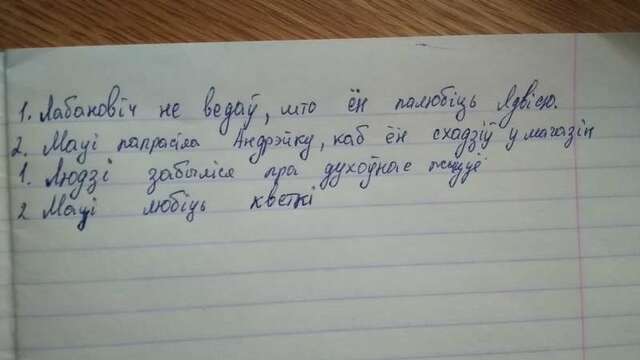 1. Лабановіч не ведаў, што ён палюбіць Ядвісю.
2. Маці папрасіла Андрэйку, каб ён схадзіў у магазін
1. Людзі забыліся пра духоўнае жыццё
2 Маці любіць кветкі